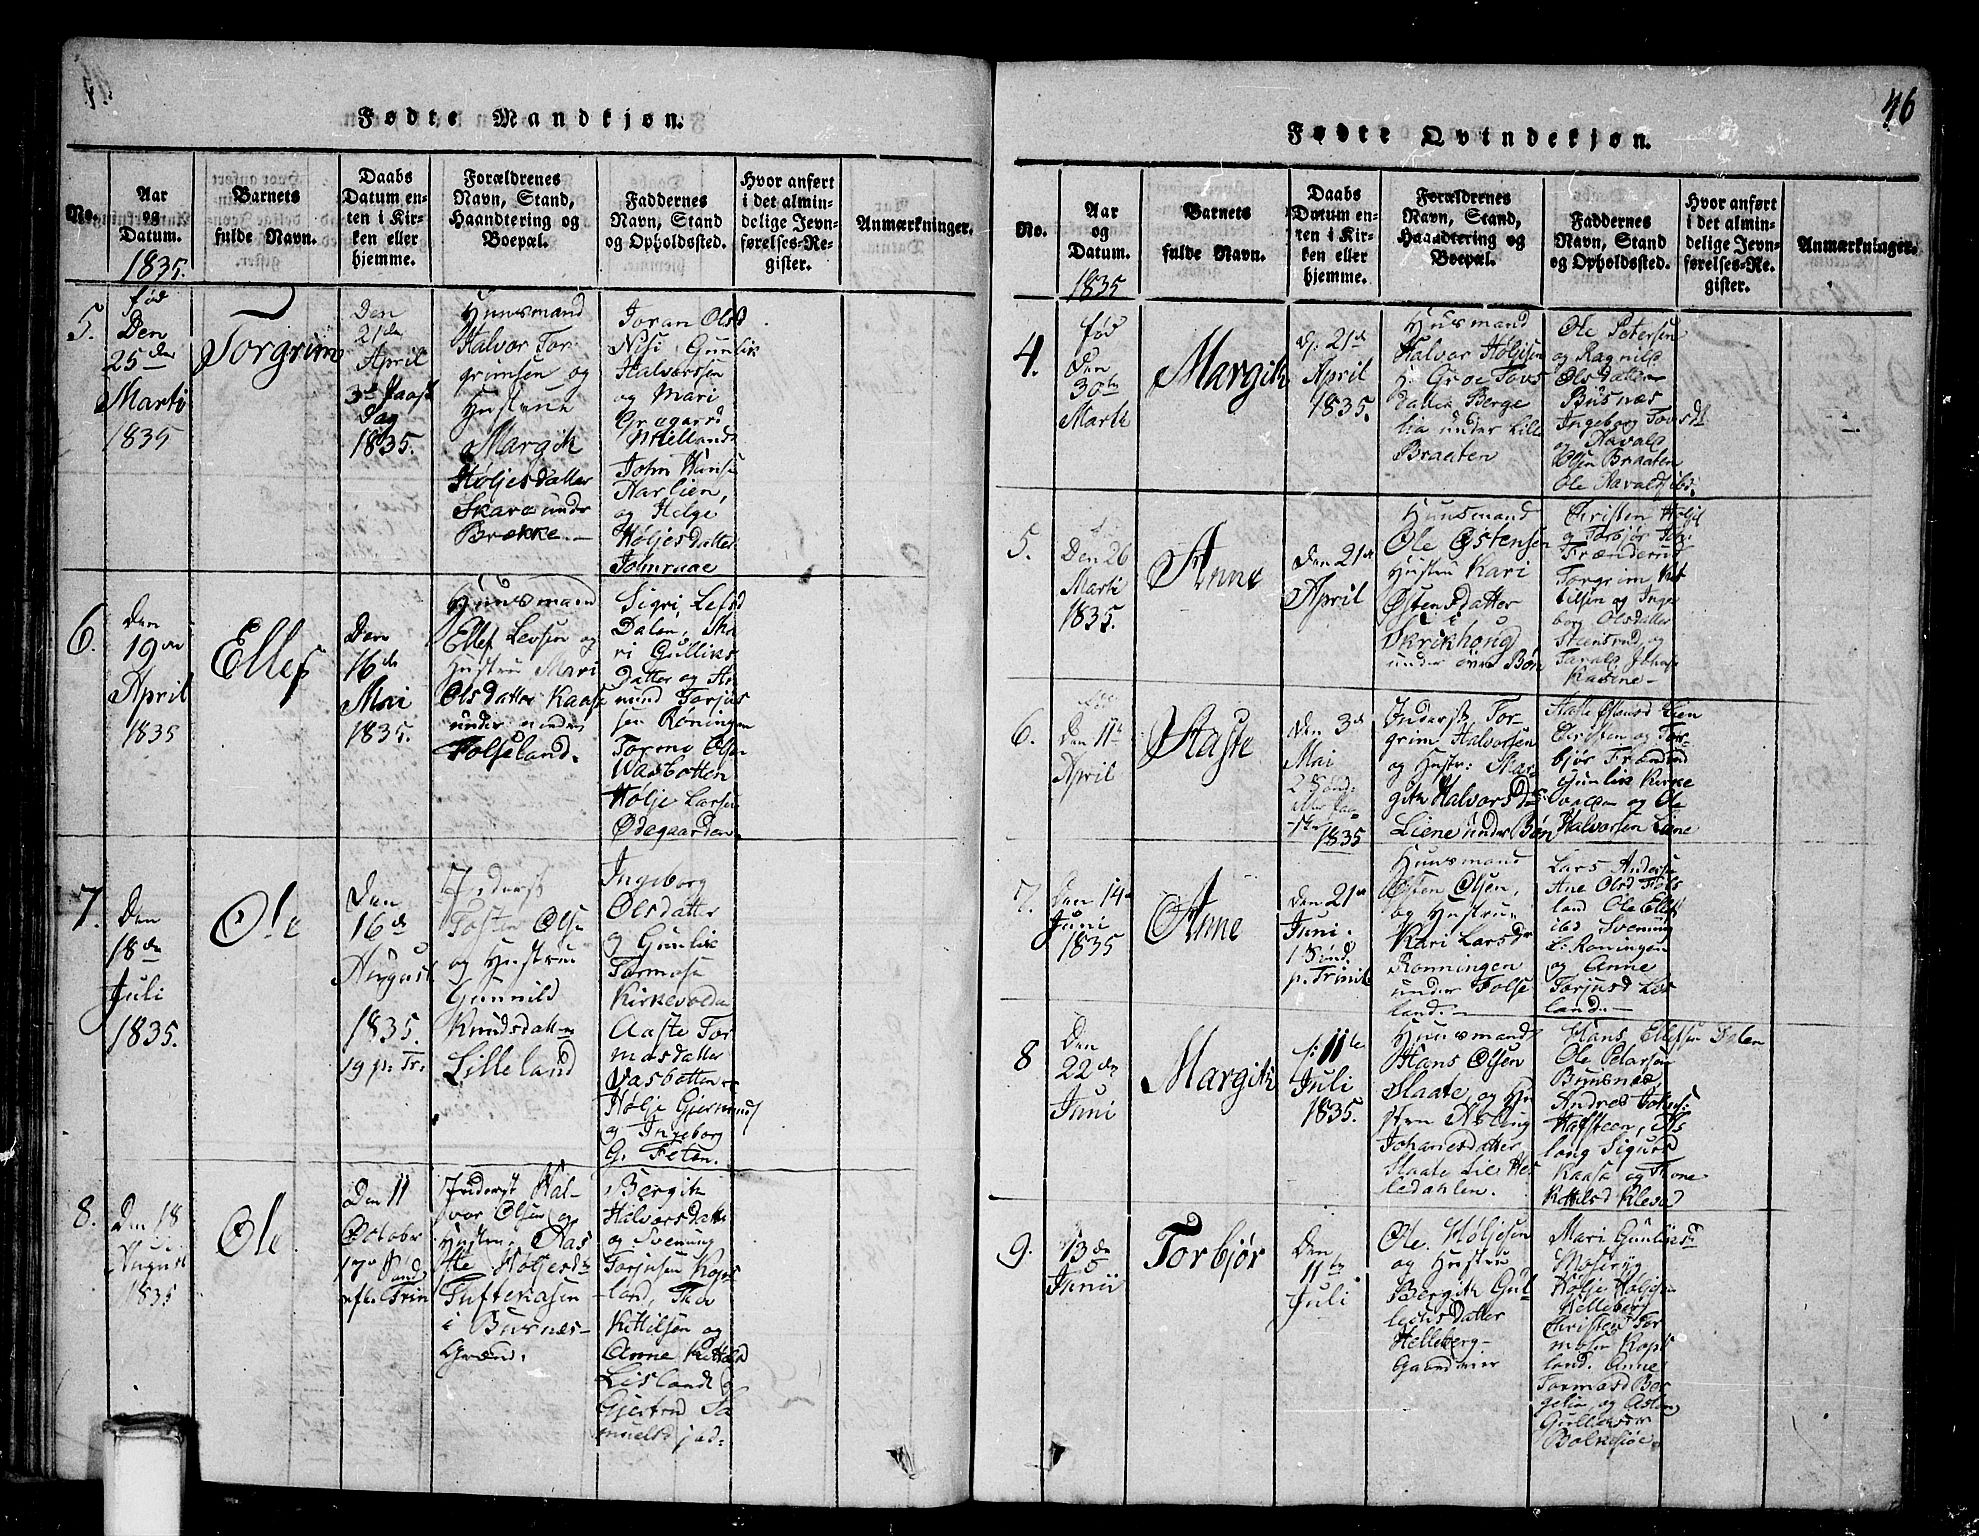 Fødte Mandkjøn.
No.
Aar
og
Datum.
1835.
Barnets
fulde Navn.
Daabs
Datum en-
ten i Kir-
ken eller
hjemme.
Forældrenes
Navn, Stand,
Haandtering og
Boepæl.
Faddernes
Navn, Stand
og Opholdssted.
Hvor anført
i det almin-
delige Jevn-
førelses-Re-
gister.
Anmærkninger.
5.
fød
Den
25de
Marti
1835
Torgrim
Den
21de
April
3die Paaske
Dag
1835.
Huusmand
Halvor Tor-
grimsen og
Hustrue
Margith
Høljesdatter
Skare under
Brække.-
Joran Olsd
Gunlik
Halvorssen
og Mari
John Hansen
og Helge
Høljesdatter
6.
Den
19de
April
1835
Ellef
Den
16de
Mai
1835.
Huusmand
Ellef Levsen og
Hustru Mari
Olsdatter Kaasa
under nedre
Folseland.
Sigri Lefsd
Dalen,
ri Gulliks
Datter og
mund Torjus
sen Røningen
Tormo Olsen
Wasbotten
Hølje Larsen
Ødegaarden
7.
Den
18de
Juli
1835.
Ole
Den
16de
August
1835.
19 p. Tr.
Inderst
Tosten Olsen
og Hustru
Gunnild
Knudsdatter
Lilleland
Ingeborg
Olsdatter
og Gunlik
Tormosen
Kirkevolden
Aaste Tor
mosdatter
Vasbotten
Hølje Gjermund
og Ingeborg
G. Feten.
8.
Den 18
August
1835
Ole
Den 11
October
17de Sønd
eft. Trin
Inderst Hal-
vor Olsen og
Hustru Aas
te Høljesd.
Tufteaasen
i Busnes-
Grænd.
Bergith
Halvorsdatter
og Svenung
Torjusen Kops
land, Thor
Kittilsen og
Anne Kittilsd
Lisland og
Gjertrud Sa
muelsd ibd.
46
Fødte Qvindekjøn.
No.
Aar
og
Datum.
1835
Barnets
fulde Navn.
Daabs
Datum en-
ten i Kir-
ken eller
hjemme.
Forældrenes
Navn, Stand,
Haandtering og
Boepæl.
Faddernes
Navn, Stand
og Opholdssted.
Hvor anført
i det almin-
delige Jevn-
førelses-Re-
gister.
Anmærkninger.
4.
fød
den
30te
Marti
Margith
d. 21de
April
1835.
Huusmand
Halvor Høljesen
h. Groe Tovs
datter Berge
lia under Lille
Braaten
Ole Petersen
og Ragnild
Olsdatter
Busnæs
Ingeborg Tovsd
og Havald
Braaten
Ole Havalds ibd.
5.
Den 26
Marti
1835.
Anne
Den 21de
April
Huusmand
Ole Østensen
Hustru Kari
Østensdatter
Skrikhoug
under øvre Bøn
Christen Høljes
og Torbjør
Torgrim Kit
tilsen og Inge
borg Olsdatter
Steensrud og
6.
fød
Den 11te
April
Aaste
Den 3de
Mai
2 Sønd.
1835
Inderst Tor-
grim Halvorsen
og Hustr: Mar-
gith Halvorsd
Liene under Bøn
Christen og Tor-
bjør
Gunlik Kirke
volden og Ole
Halvorsen Liene
7.
Den 14de
Juni
1835
Anne
Den 21de
Juni.
1 Sønd.
p. Trinit
Huusmand
Østen Olsen,
og Hustrue
Kari Larsdr
Ronningen
under Folse
land.-
Lars Anders
Ane Olsd Fols
land Ole Ellefs
ibd Svenung
L: Roningen
og Anne
Torjusd Lis
land.-
8
Den
22de
Juni
Margith
d: 11te
Juli
1835.
Huusmand
Hans Olsen
Slaate, og Hu
stru Asloug
Johanesdatter
Slaate Lie He
ledahlen.
Hans Ellefsen Dalen
Ole Petersen
Buusnæs,
Andres
Haffsteen, As
loug Sigurd
Kaasa og Thone
Kittilsd Klesrud
9.
13de
Junii
Torbjør
Den
11te
Juli
Ole Høljesen
og Hustru
Bergith Gul
leiksdatter
Helleberg-
Gaardmer
Mari Gunliksd
Mosebyg
Hølje Høljesen
Helleberg
Christen Tor
mosen Kops
land. Anne
Tormosd Bor
gelia, og Aslaug
Gulleiksdr
Bolkesjøe.